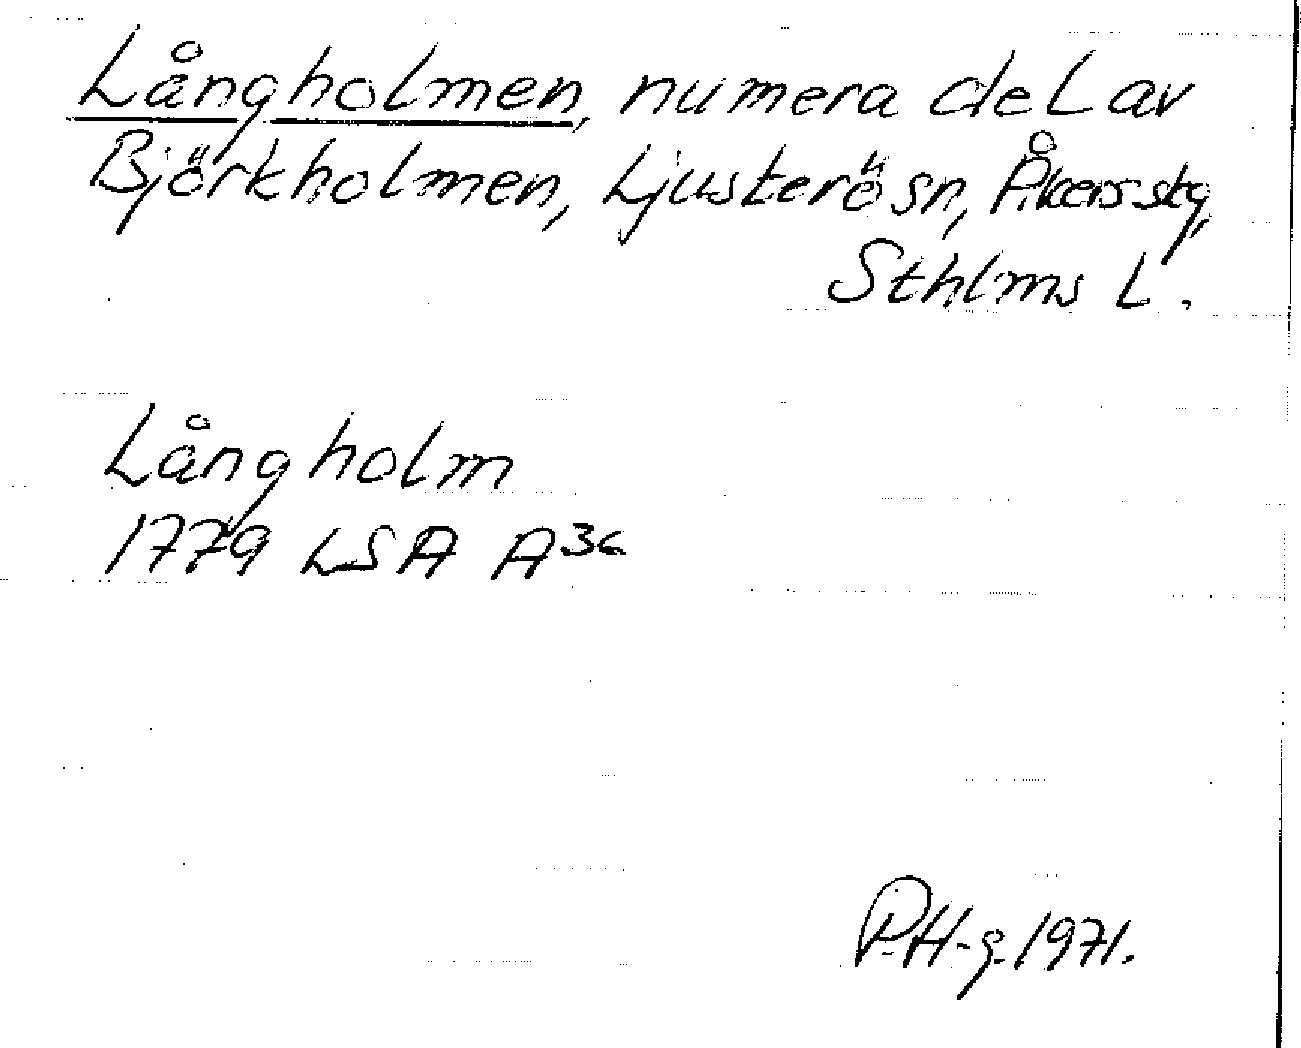 Långholmen, numera del av
Björkholmen, Ljusterö sn, Åkers skg,
Sthlms L.
Långholm
1779 LSA A36
P.H-g. 1971.